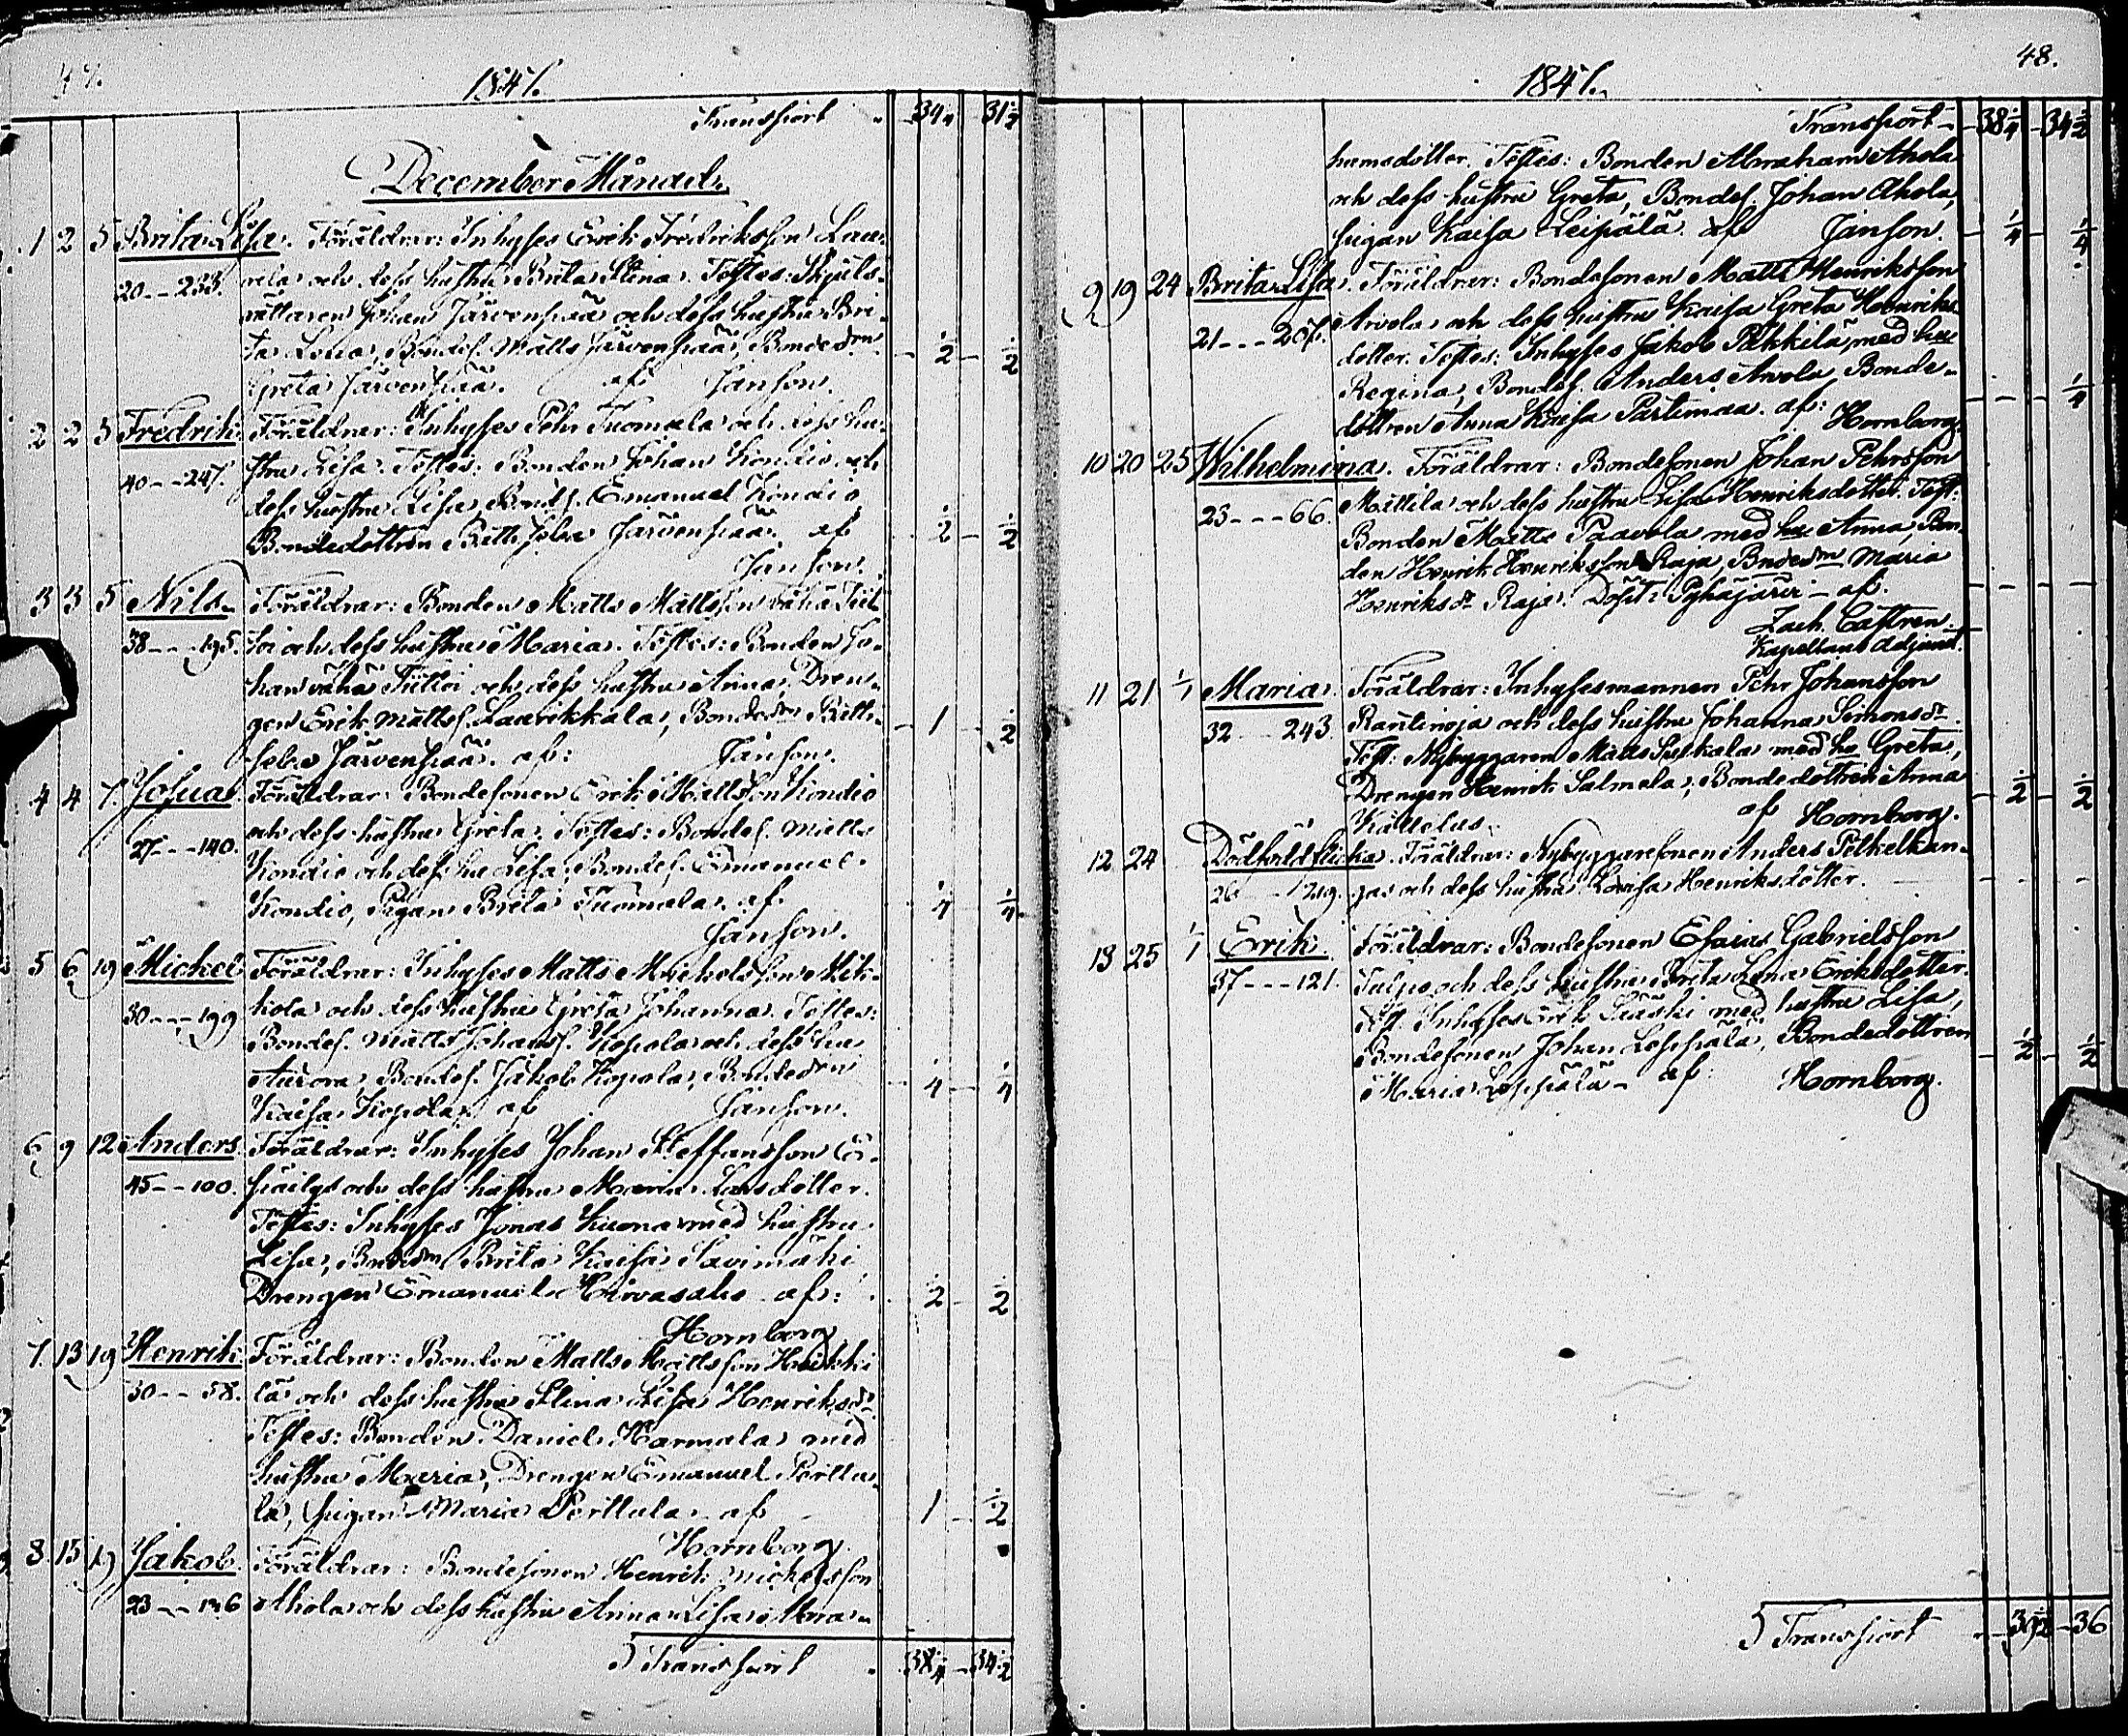 47.
1847.
Transport 34 31½
December Månad.
1 2 5 Brita Lisa. Föräldrar: Inhyses Erik Fredriksson Lau-
20--233. rela och dess hustru Brita Stina. Testes: Skjuts-
rättaren Johan Järvenpää och dess hustru Bri-
ta Lena, Bondes. Matts Järvenpää, Bondedrn ½ ½
Greta Järvenpää. af Janson.
2 2 5 Fredrik. Föräldrar: Inhyses Pehr Tuomala och dess hu-
40--247. stru Lisa. Testes: Bonden Johan Kondio och
dess hustru Lisa, Bonds. Emanuel Kondio
Bondedottren Järvenpää. af ½ ½
Janson.
3 3 5 Nils. Föräldrar: Bonden Matts Mattsson vähä Tiit-
38---195. toi och dess hustru Maria. Testes: Bonden Jo-
han vähä Tiittoi och dess hustru Anna, Dren-
gen Erik Mattss. Laurikkala, Bondedrn 1 ½
Järvenpää. af: Janson.
4 4 7. Josua. Föräldrar: Bondesonen Erik Mattsson Kondio
27---140. och dess hustru Greta. Testes: Bondes. Matts
Kondio och dess hu Lisa, Bondes. Emanuel
Kondio, Pigan Brita Tuomala. af. ¼ ¼
Janson.
5 6 19 Mickel Föräldrar: Inhyses Matts Michelsson Mik-
30---199 kola och dess hustru Greta Johanna. Testes:
Bondes. Matts Johanss. Kopola och dess hu
Aurora, Bondes. Jakob Kopola, Bondedrn ¼ ¼
Kaisa Kopola. af Janson.
6 9 12 Anders. Föräldrar: Inhyses Johan Steffansson
45--100. och dess hustru Maria Larsdotter.
Testes: Inhyses Jonas Kuona med hustru
Lisa, Bondedrn Brita Kaisa Savimäki
Drengen Emanuel Hirvasaho af: ½ ½
Hornborg
7. 13 19 Henrik. Föräldrar: Bonden Matts Mattsson Heikki-
30--58. lä och dess hustru Stina Lisa Henriksdr
Testes: Bonden Daniel Harmala med
hustru Maria, Drengen Emanuel Perttu-
la, pigan Maria Perttula. af 1 ½
Hornborg.
8. 15 19 Jakob. Föräldrar: Bondesonen Henrik Michelsson
23---136 Ahola och dess hustru Anna Lisa Abra-
Transport 38¼ 34½
48.
1847.
Transport 38¼ 34½
hamsdotter. Testes: Bonden Abraham Ahola
och dess hustru Greta, Bondes. Johan Ahola,
pigan Kaisa Leipälä. af Janson. ¼ ¼
9 19 24 Brita Lisa. Föräldrar: Bondesonen Matts Henriksson
21---207. Arvola och dess hustru Kaisa Greta Henriks-
dotter. Testes: Inhyses Jakob Pikkilä, med hu
Regina, Bondes. Anders Arvola, Bonde-
dottren Anna Kaisa Partimaa. af: Hornborg. ¼
10 20 25 Wilhelmina. Föräldrar: Bondesonen Johan Pehrsson
23---66. Mattila och dess hustru Lisa Henriksdotter. Test:
Bonden Matts Paavola med hu Anna, Bon-
den Henrik Henriksson Raja, Bndedrn Maria
Henriksdr Raja. Döpt i Pyhäjärvi – af.
Zach. Castren.
Kapellans Adjunct.
11 21 1/1 Maria. Föräldrar: Inhysesmannen Pehr Johansson
32---243. Rautinoja och dess hustru Johanna Simonsdr
Test: Nybyggaren Matts med hu Greta,
Drengen Henrik Salmela, Bondedottren Anna
Kattelus. af Hornborg. ½ ½
12 24 Dödfödd flicka. Föräldrar: Nybyggaresonen Anders Pelkelkan-
26---219. gas och dess hustru Lovisa Henriksdotter.
13 25 1/1 Erik. Föräldrar: Bondesonen Esaias Gabrielsson
37---121. Tulpo och dess hustru Brita Lena Eriksdotter.
Test. Inhyses Erik Sääski med hustru Lisa,
Bondesonen Johan Leppälä, Bondedottren
Maria Leppälä – af. Hornborg. ½ ½
Transport 39½ 36